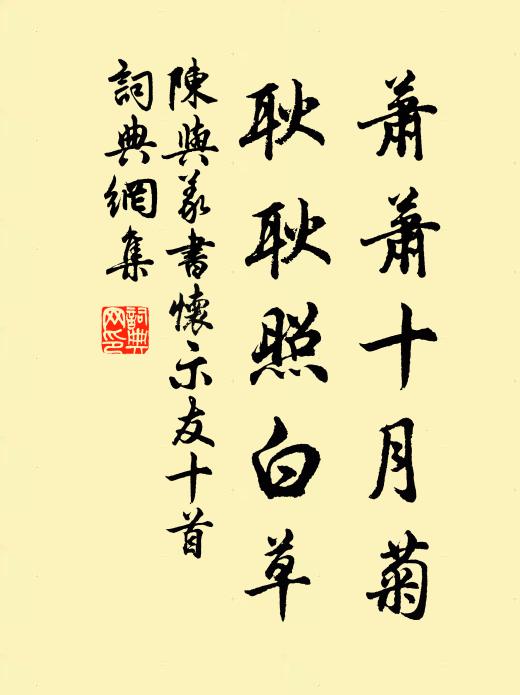 蕭蕭十月菊
耿耿照白草
陳與義書懷示友十首
詞典網集
詞典
网印